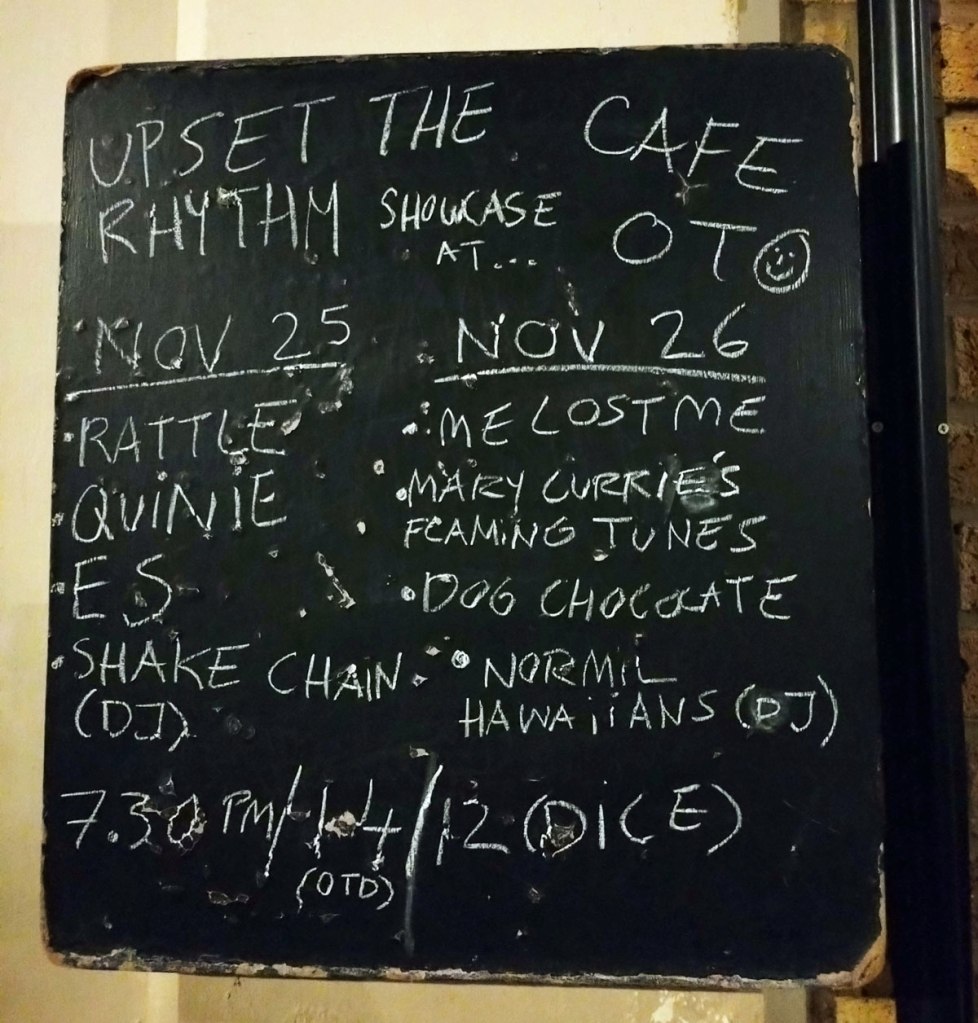 UPSET THE CAFE
RHYTHM SHOWCASE AT... OTO
NOV 25
• RATTLE
• QUINIE
• ES
• SHAKE CHAIN
(DJ)
NOV 26
• ME LOST ME
• MARY CURRIE'S
FOAMING TUNES
• DOG CHOCOLATE
• NORMIL
HAWAIIANS (DJ)
7.30 PM/14/12 (DICE)
(OTD)